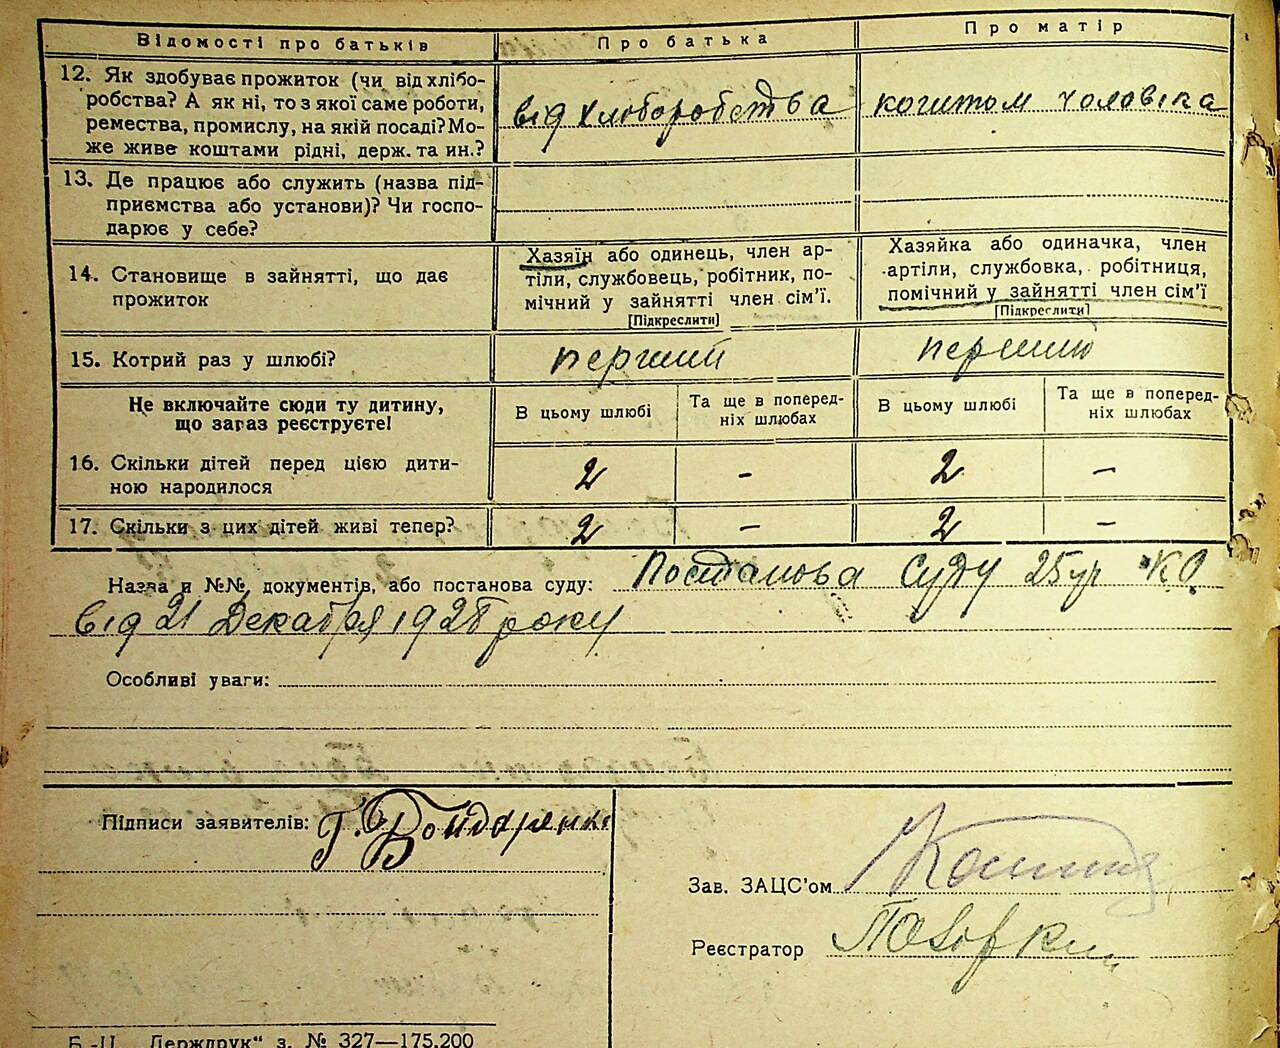 Відомості про батьків Про батька Про матір
12. Як здобуває прожиток (чи від хлібо-
робства? А як ні, то з якої саме роботи,
ремества, промислу, на якій посаді? Мо-
же живе коштами рідні, держ. та ин.?
від хлюборобства коштом чоловіка
13. Де працює або служить (назва під-
приємства або установи)? Чи госпо-
дарює у себе?
14. Становище в зайнятті, що дає
прожиток
Хазяїн або одинець, член ар-
тіли, службовець, робітник, по-
мічний у зайнятті член сім'ї.
[Підкреслити]
Хазяйка або одиначка, член
артіли, службовка, робітниця,
помічний у зайнятті член сім'ї
[Підкреслити]
15. Котрий раз у шлюбі? перший
Не включайте сюди ту дитину,
що зараз реєструєте!
В цьому шлюбі
Та ще в поперед-
ніх шлюбах
В цьому шлюбі
Та ще в поперед-
ніх шлюбах
16. Скільки дітей перед цією дити-
ною народилося
2 - 2 -
17. Скільки з цих дітей живі тепер? 2 - 2 -
Назва и №№ документів, або постанова суду: Постанова Суду
від 21 Декабря 1928 року
Особливі уваги:
Підписи заявителів: Г. Бондаренко
Зав. ЗАЦС'ом
Реєстратор
Б.-Ц. „Держдрук“ з. № 327—175.200